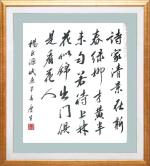 詩家清景在新
春綠柳才黄半
未匀若待上林
花似錦出門俱
是看花人
楊巨源城東早春